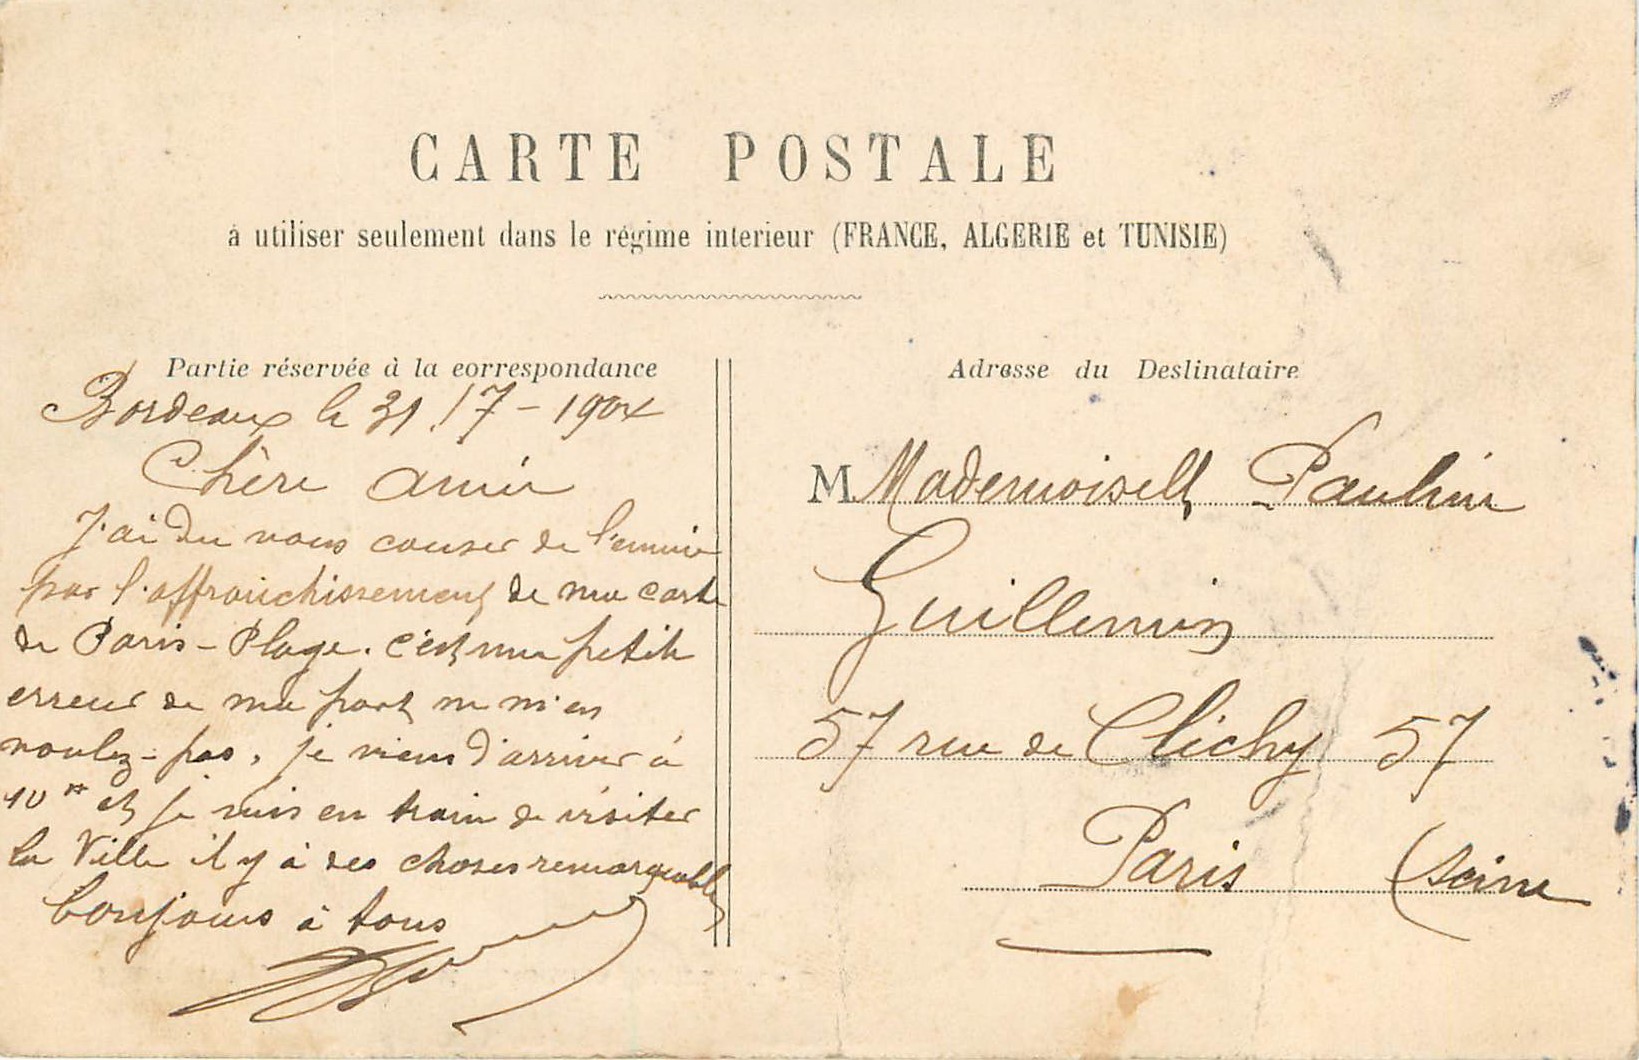 CARTE POSTALE
à utiliser seulement dans le régime interieur (FRANCE, ALGERIE et TUNISIE)
Partie réservée à la correspondance
Bordeaux le 31/7-1904
Chère amie
J'ai du vous causer de l'ennuie
par l'affranchissement de ma carte
de Paris-Plage. c'est une petite
erreur de ma part ne m'en
voulez-pas. je viens d'arriver à
10 et je suis en train de visiter
la Ville il y à des choses remarquables
bonjours à tous
Adresse du Destinataire
M Mademoiselle Pauline
Guillemin
57 rue de Clichy 57
Paris (Seine